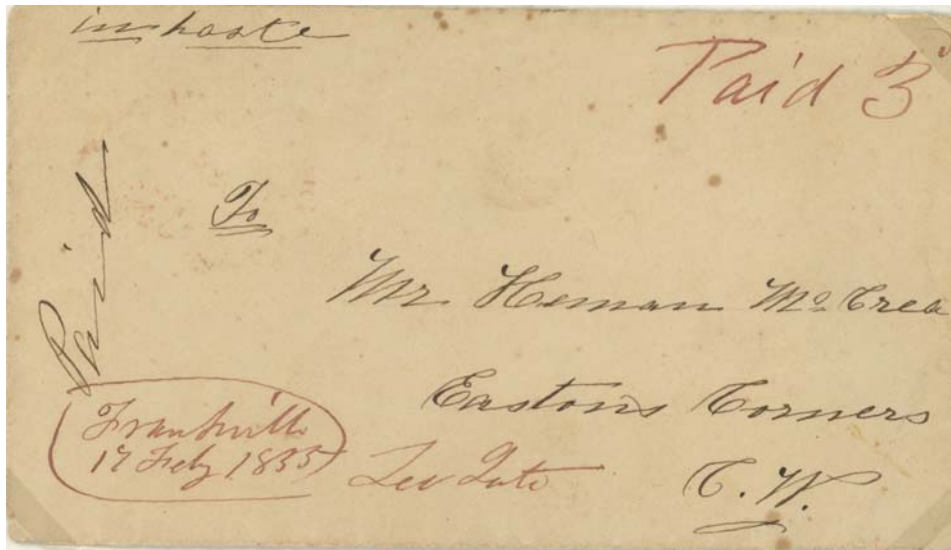 in haste
Paid 3
Paid
To
Mr. Heman McCrea
Eastons Corners
C. W.
Frankville
17 Feby 1855